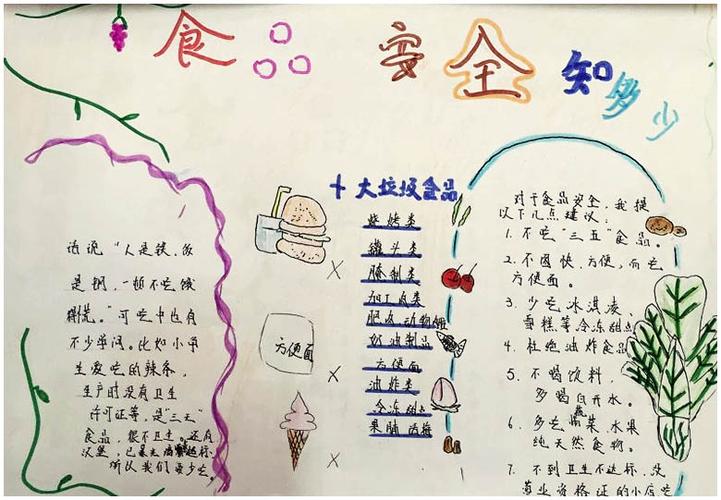 食品安全知多少
话说“人是铁,饭
是钢,一顿不吃饿
得慌。”可吃中也有
不少学问。比如小学
生爱吃的辣条,
生产时没有卫生
许可证等,是“三无”
食品,很不卫生。还有
所以我们要少吃。
方便面
十大垃圾食品
烧烤类
罐头类
腌制类
加工肉类
肥肉动物
奶油制品
方便面
油炸类
冷冻甜点
果脯
对于食品安全,我提
以下几点建议:
1.不吃“三五”食品。
2.不图快,方便,而吃
方便面。
3.少吃冰淇凌、
雪糕等冷冻甜点
4.杜绝油炸食品
5.不喝饮料,
多喝白开水。
6.多吃蔬菜,水果
纯天然食物。
7.不到卫生不达标,没
营业资格证的小店吃